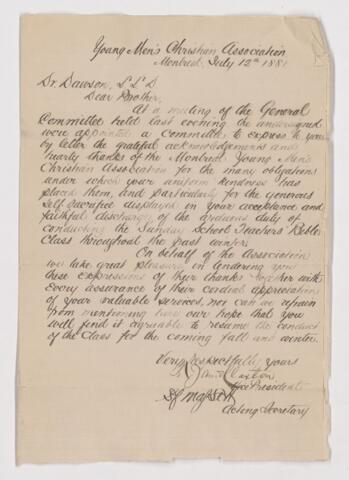 Young Men's Christian Association
Montreal, July 12th 1881
Dr. Dawson, L L D
Dear Brother,
At a meeting of the General
Committee held last evening the undersigned
were appointed a Committee to express to you
by letter the grateful acknowledgements and
hearty thanks of the Montreal Young Men's
Christian Association for the many obligations
under which your uniform kindness has
placed them, and particularly for the generous
Self Sacrifice displayed in your acceptance and
faithful discharge of the arduous duty of
conducting the Sunday School Teachers' Bible
Class throughout the past winter.
On behalf of the Association
we take great pleasure in tendering you
these expressions of their thanks together with
every assurance of their cordial appreciation
of your valuable services, nor can we refrain
from mentioning here our hope that you
will find it agreeable to resume the conduct
of the Class for the coming fall and winter.
Very respectfully yours
Claxton
Vice President
Massey
Acting Secretary